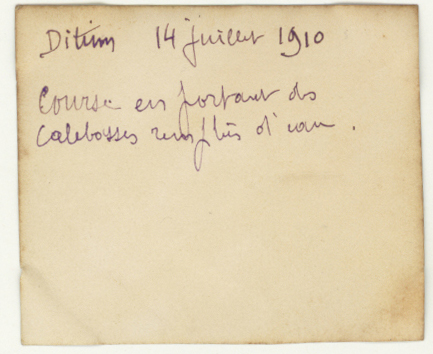 Ditinn 14 juillet 1910
Course en portant des
Calebasses remplies d'eau.